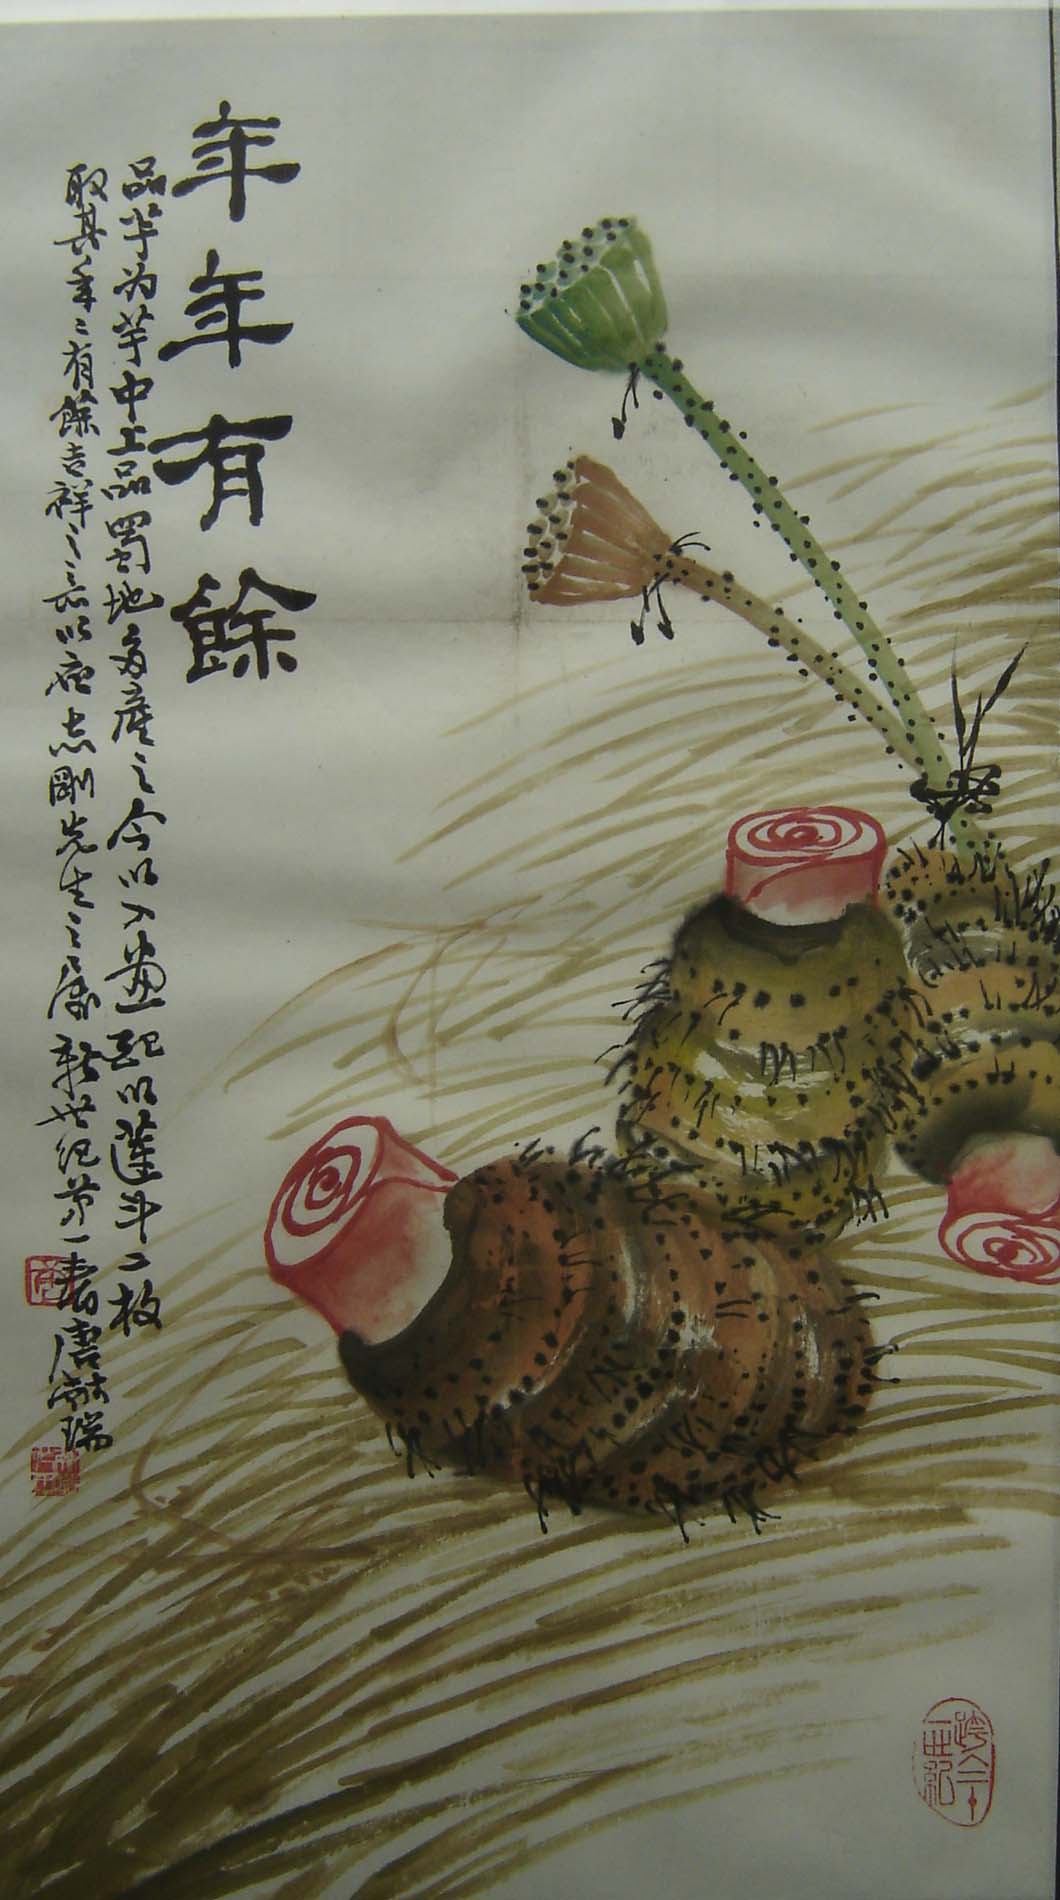 年年有餘
品芋为芋中上品蜀地多産之今以入畫配以蓮斗二枚
取其年〻有餘吉祥之意以应志剛先生之屬新世纪第一春唐瑞
跨入二十一世紀